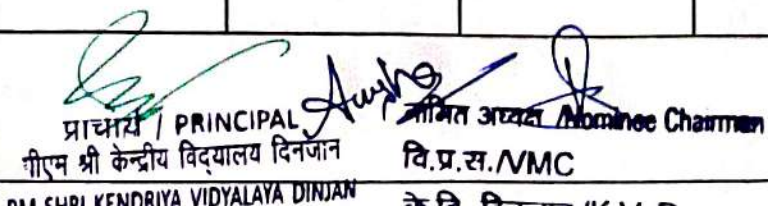 प्राचार्य / PRINCIPAL
पीएम श्री केन्द्रीय विद्यालय दिनजान
PM SHRI KENDRIYA VIDYALAYA DINJAN
नामित अध्यक्ष /Nominee Chairman
वि.प्र.स./VMC